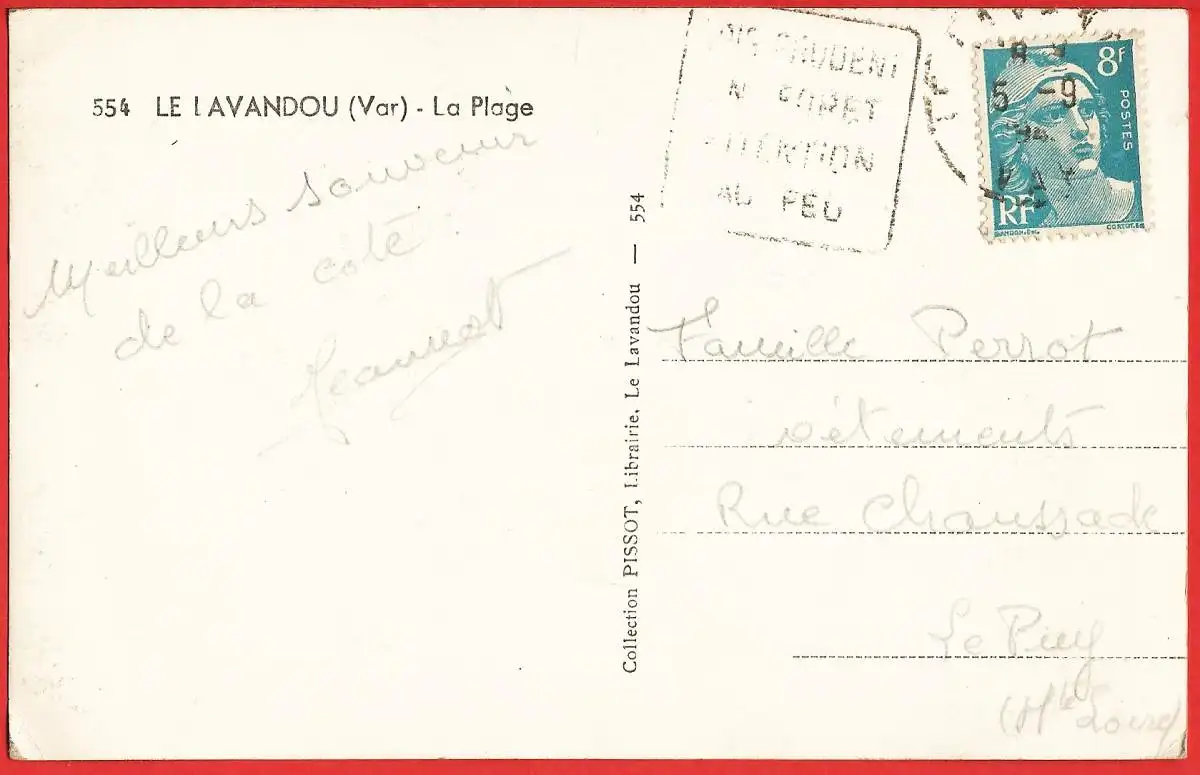 554 LE LAVANDOU (Var) - La Plage
Meilleurs souvenir
de la cote.
Jeannot
Collection PISSOT, Librairie, Le Lavandou — 554
PRUDENT
N FORET
ATTENTION
AU FEU
5 -9
VAR
8f
POSTES
RF
GANDON.DEL
CORTOT.SC
Famille Perrot
vêtements
Rue Chaussade
Le Puy
(Hte Loire)